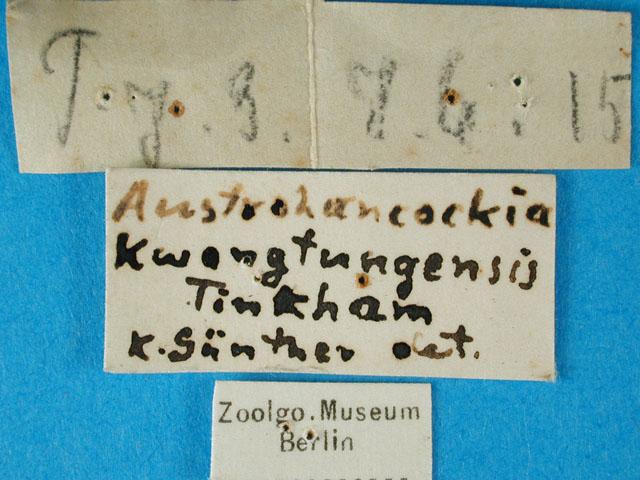 T.y.S. 8.4.15
Austrohancockia
kwangtungensis
Tinkham
K. Günther det.
Zoolgo. Museum
Berlin